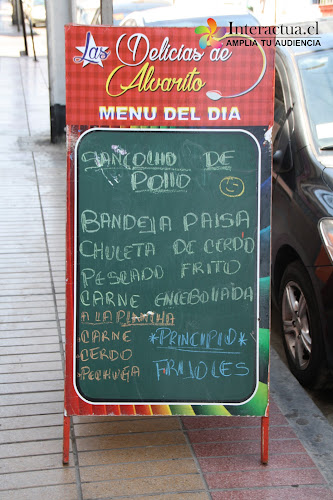 Interactua.cl
AMPLIA TU AUDIENCIA
Las Delicias de
Alvarito
MENU DEL DIA
SANCOCHO DE
POllO
BANDEJA PAISA
CHULETA DE CERDO
PESCADO FRITO
CARNE ENCEBOLLADA
A LA PLANCHA
-CARNE
-CERDO
-PECHUGA
*PRINCIPIO*
FRIJOLES